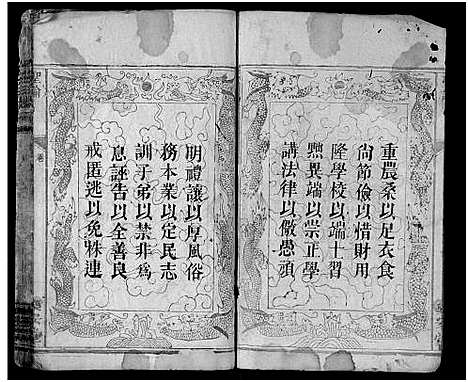 重農桑以足衣食
尙節儉以惜財用
隆學校以端士習
黜異端以崇正學
講法律以儆愚頑
明禮讓以厚風俗
務本業以定民志
訓子弟以禁非為
息誣告以全善良
戒匿逃以免株連